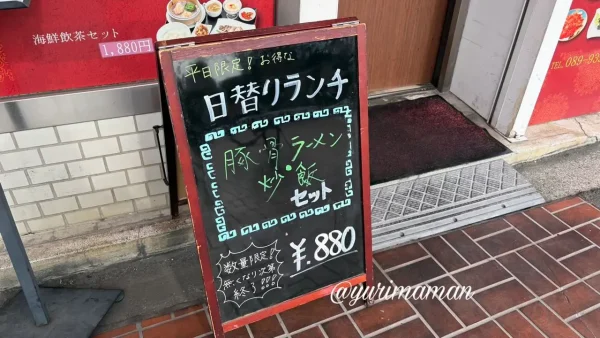 海鮮飲茶セット
1,880円
平日限定!お得な
日替りランチ
豚骨ラーメン
炒飯
セット
¥.880
数量限定!
無くなり次第
終了!!!
TEL.089-93
@yurimaman